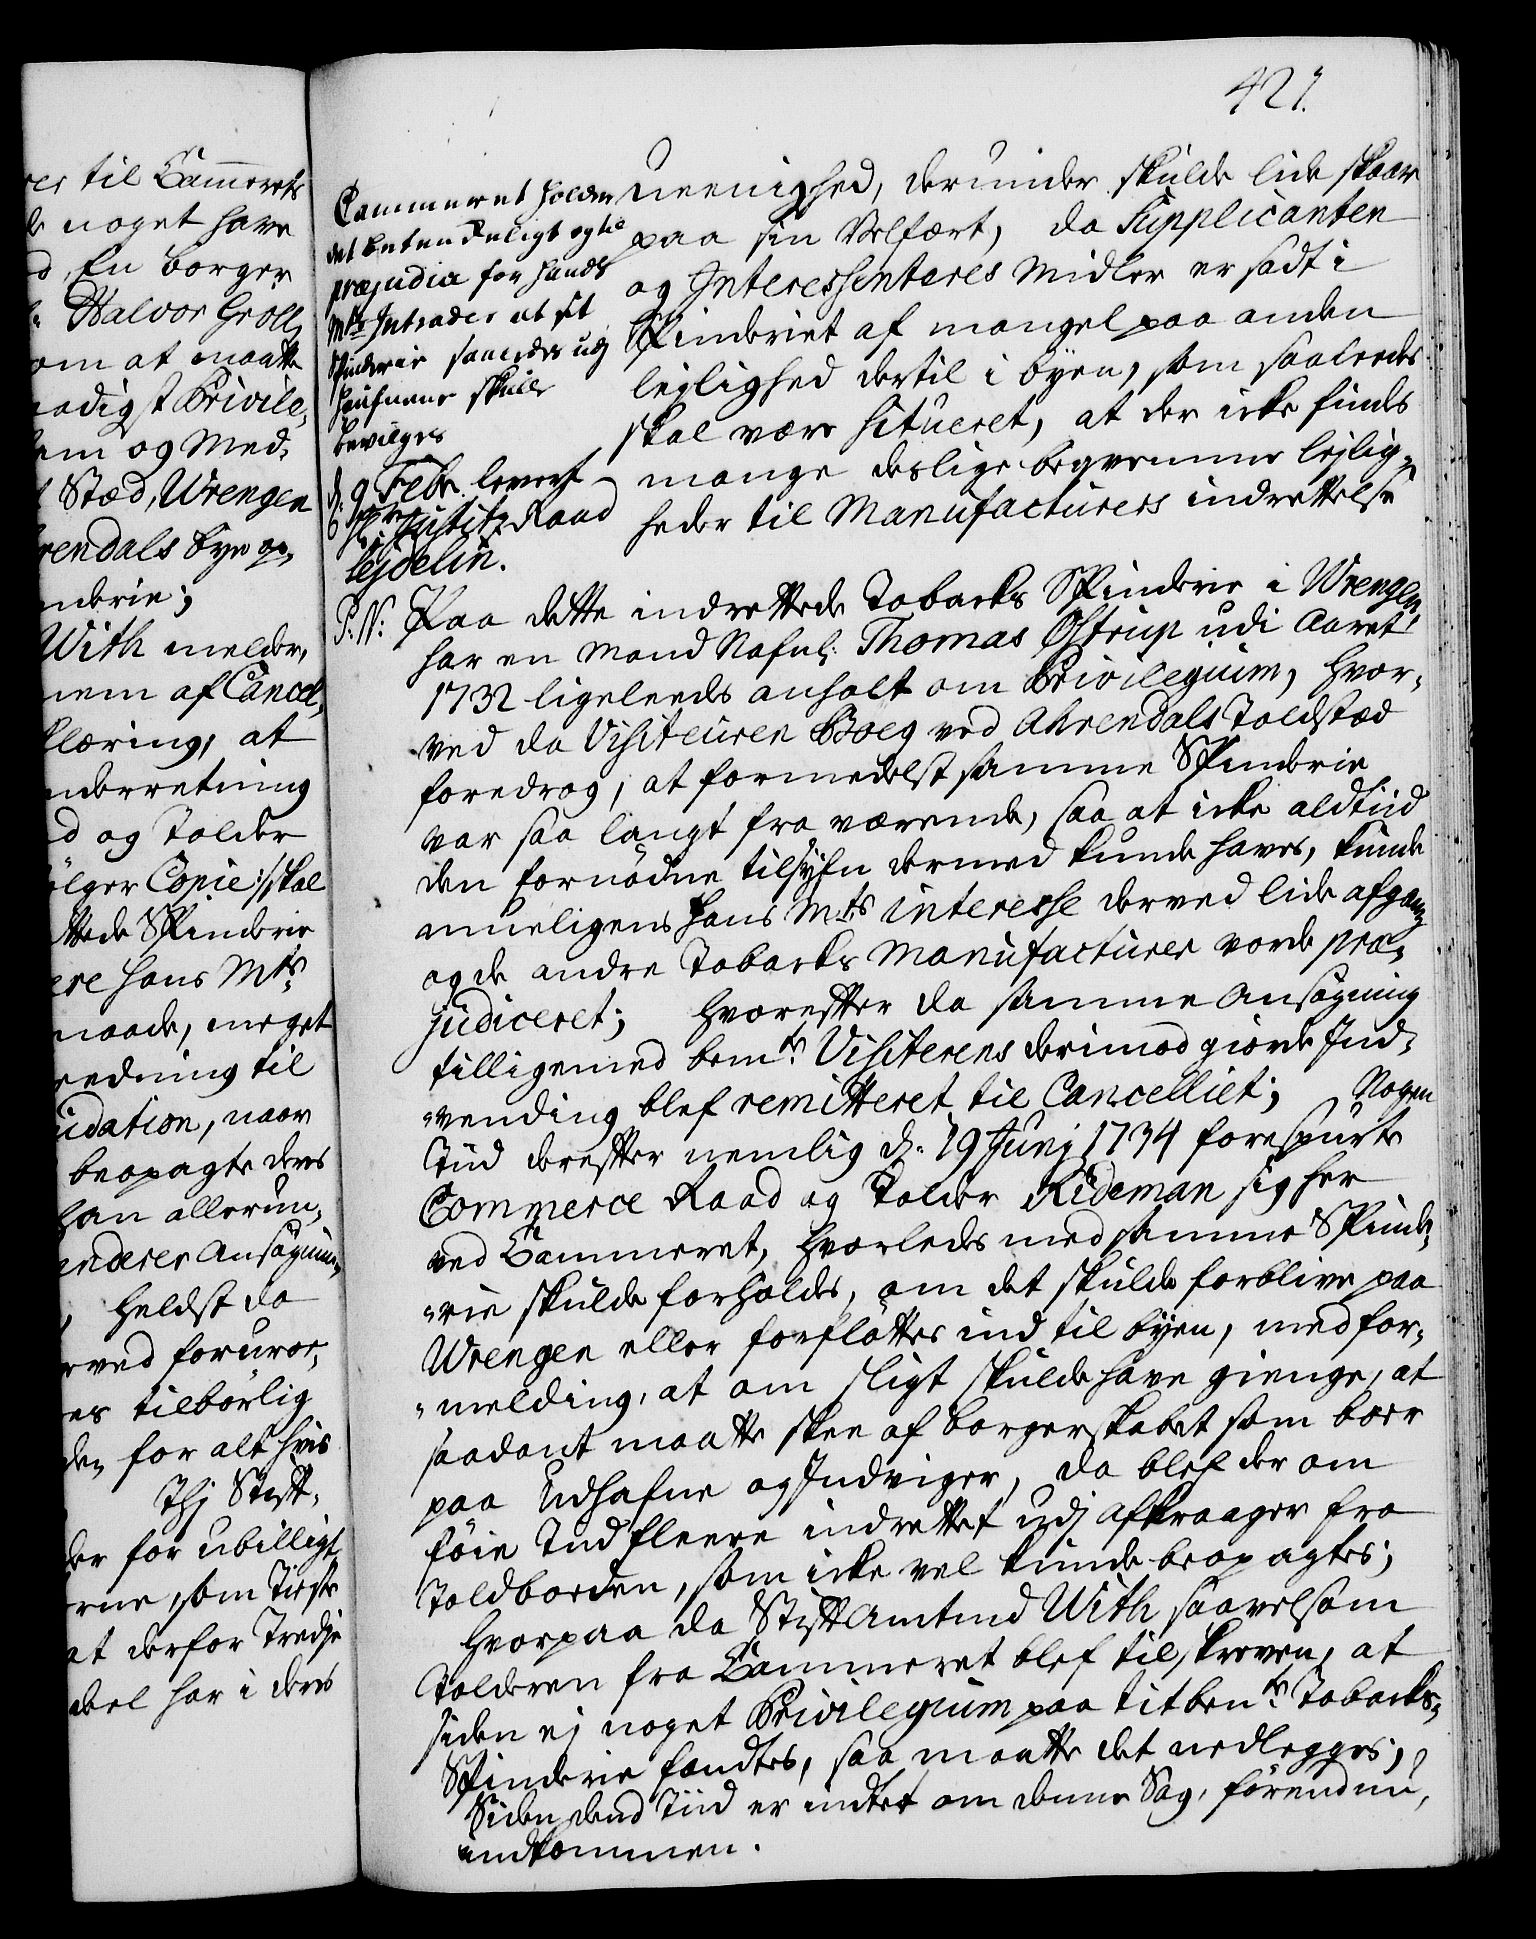 421.
res til Cammerets
de noget have
d, En borger
Halvor Groll
om at maatte
aadigst Privile,
em og Med-
Stæd, Wrengen
rendals bye op,
nderie;
With melder,
nem af Cancel,
klæring, at
nderretning
d og Tolder
ølger Copie :/ skal
ttede Spinderie
ere hans Mts
maade, meget
redning til
idation, naar
beopagte ders
han allerun,
enderes Ansøgning
, heldst da
rved foruroe,
es tilbørlig
den for alt hvis
Thj Stift-
der for ubilligt
erne, som Tieste
at derfor Tredje
deel har i ders
Cammeret holder
det betændeligt og til
præjudice for hands
Mts Intrader at sit
Spinderie saaledes udj
hafnene skulle
bevilges
d. 9 Febr. leveret
hr. Justitz Raad
Lejdelin.
ueenighed, derunder skulde lide skaar
paa sin Velfært, da Supplicanten
og Interessenteres Midler er sadt i
Spinderiet af mangel paa anden
lejlighed dertil i byen, som saaleedes
skal være situeret, at der icke findes
mange deslige beqvemme lejlig-
heder til Manufacturers indrettelse
P: N: Paa dette indrettede Tobacks Spinderie i Wrengen,
har en Mand Nafnl: Thomas Ostrup udi Aaret
1732 ligeleeds anholt om Privilegium, hvor-
ved da Visiteuren Boeg ved Ahrendals Toldstæd
foredrog, at formedelst samme Spinderie
var saa langt fra værende, saa at icke aldtiid
den fornødne tilsyhn dermed kunde haves, kunde
mueligens Hans Mts interesse derved lide afgang
og de andre Tobacks Manufacturer vorde præ-
judiceret; hvorefter da samme Ansøgning
tilligemed bemte Visiterens derimod giorde Ind-
vending blef remitteret til Cancelliet; Nogen
Tiid derefter nemlig d. 19 Junj 1734 forespurte
Commerce Raad og Tolder Rideman sig her
ved Cammeret, hvorledes med samme Spinde-
rie skulde forholdes, om det skulde forblive paa
Wrengen eller forfløttes ind til byen, med for-
melding, at om sligt skulde have gienge, at
saadant maatte skee af borgerskabet som boer
paa Udhafne og Indviger, da blef der om
føie Tiid fleere indrettet udj afkraager fra
Toldboeden, som icke vel kunde beopagtes;
Hvorpaa da Stiftamtmd With saavelsom
Tolderen fra Cammeret blef tilskreven, at
siden ej noget Privilegium paa titbemte Tobacks-
Spinderie fandtes, saa maatte det nedlegges,
Siden dend Tiid er intet om denne Sag, førend nu,
indkommen.